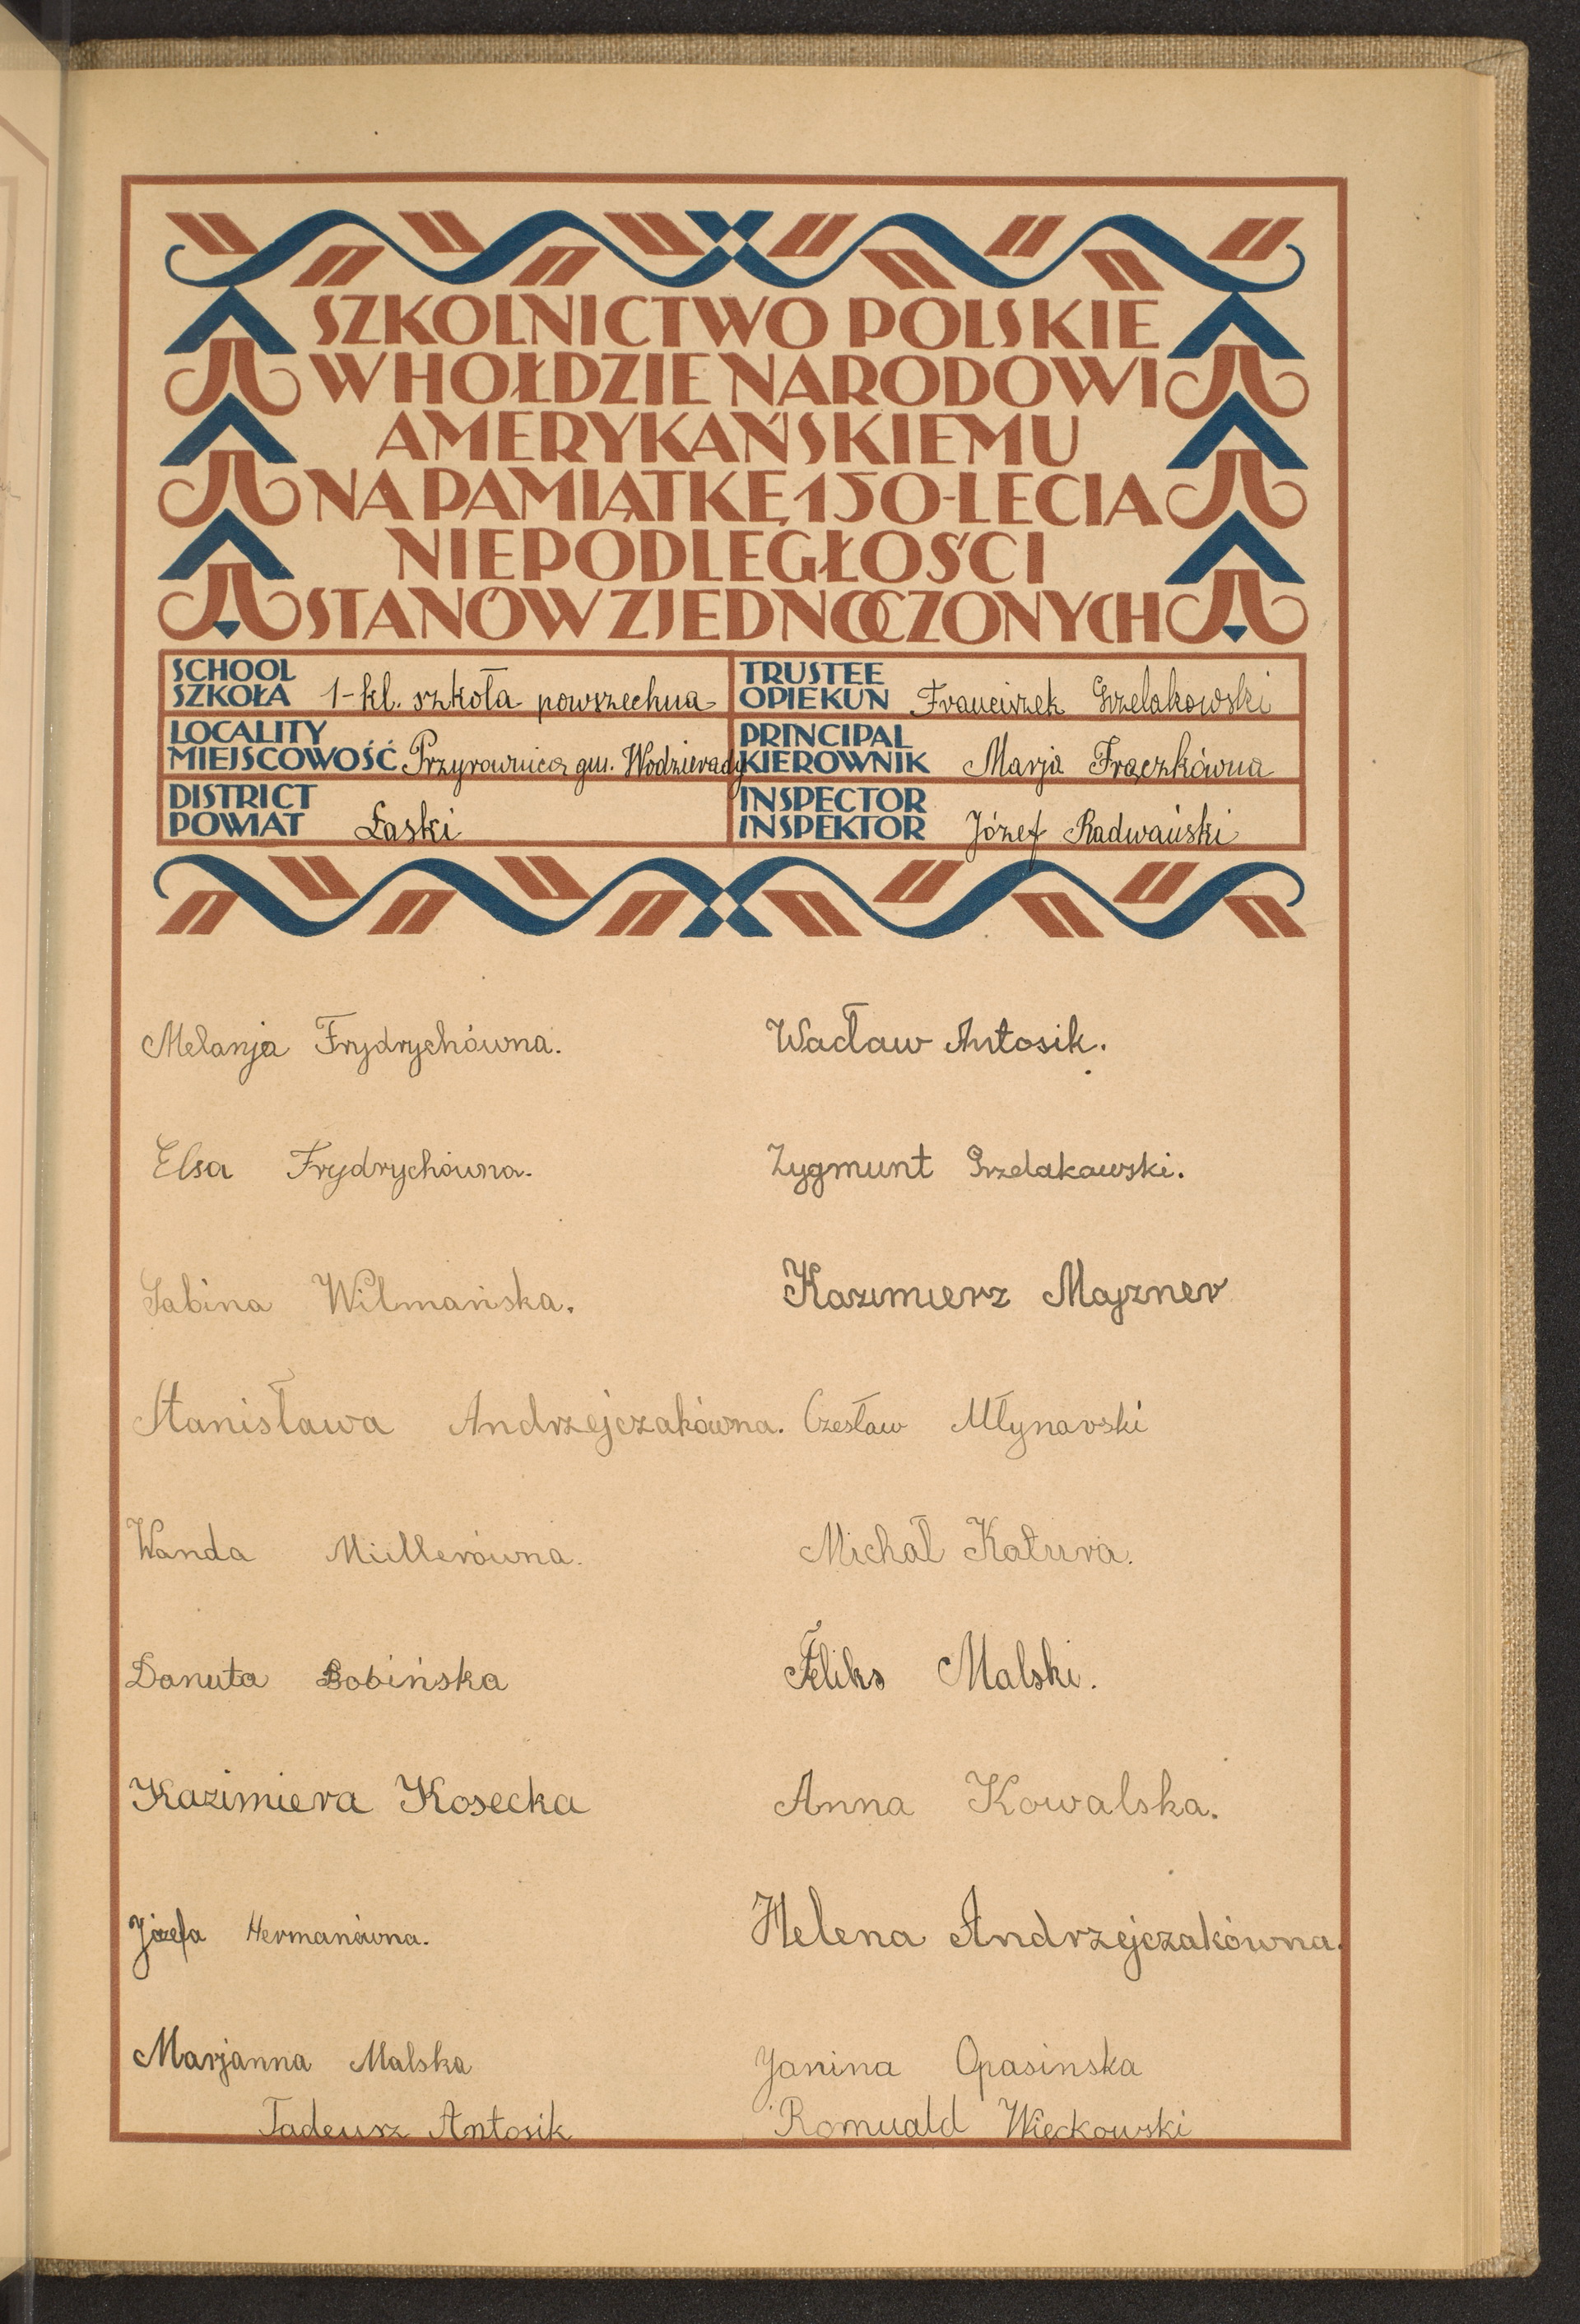 SZKOLNICTWO POLSKIE
W HOŁDZIE NARODOWI
AMERYKAŃSKIEMU
NA PAMIĄTKĘ 150-LECIA
NIEPODLEGŁOŚCI
STANÓW ZJEDNOCZONYCH
SCHOOL
SZKOŁA 1-kl. szkoła powszechna
TRUSTEE
OPIEKUN Franciszek Grzelakowski
LOCALITY
MIEJSCOWOŚĆ Przyrownica gm. Wodzierady
PRINCIPAL
KIEROWNIK Marja Frączkówna
DISTRICT
POWIAT Łaski
INSPECTOR
INSPEKTOR Józef Radwański
Melanja Frydrychówna.
Wacław Antosik.
Elsa Frydrychówna.
Zygmunt Grzelakowski.
Sabina Wilmańska.
Kazimierz Majzner
Stanisława Andrzejczakówna.
Czesław Młynarski
Wanda Müllerówna.
Michał Katura.
Danuta Bobińska
Feliks Malski.
Kazimiera Kosecka
Anna Kowalska.
Józefa Hermanówna.
Helena Andrzejczakówna.
Marjanna Malska
Janina Opasinska
Tadeusz Antosik
Romuald Więckowski